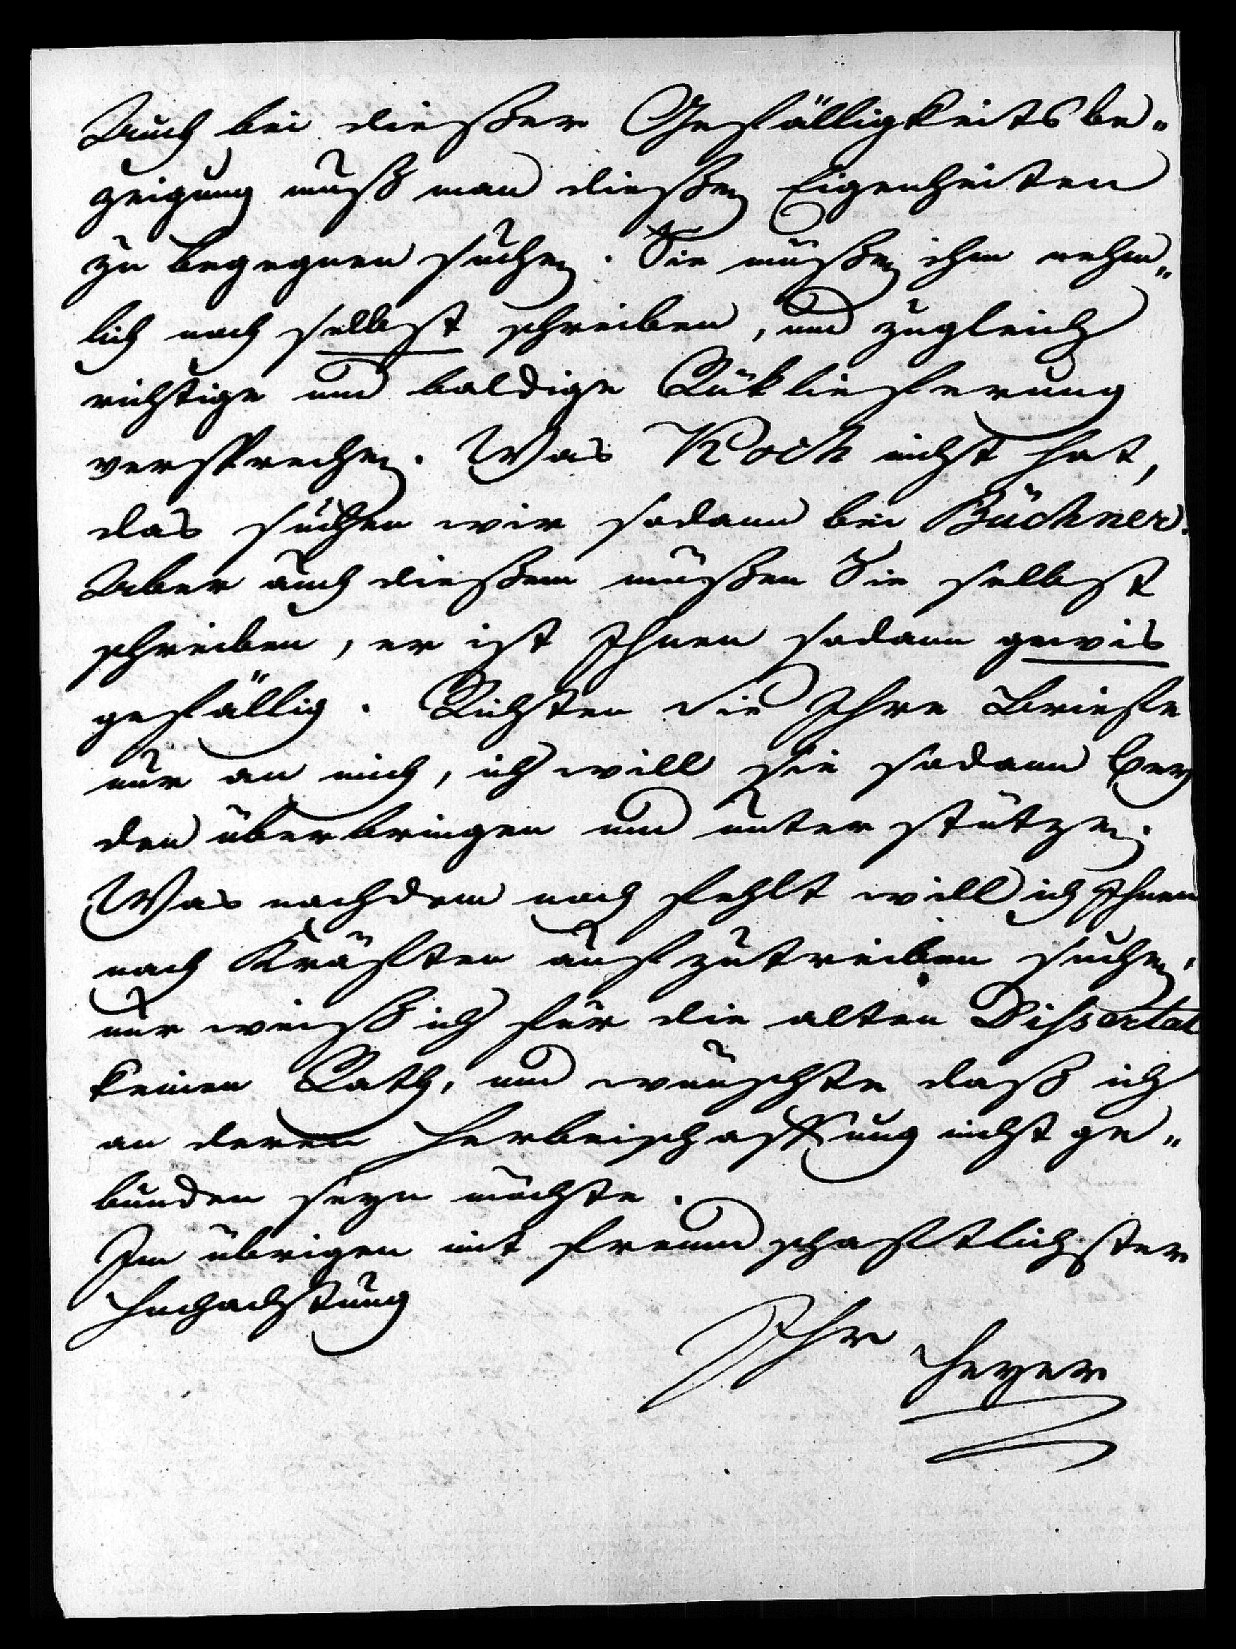 Auch bei dießer Gefälligkeitsbe„
zeigung muß man dießen Eigenheiten
zu begegnen suchen. Sie müßen ihm nehm„
lich noch selbst schreiben, und zugleich
richtige und baldige Rükliefferung
versprechen. Was Koch nicht hat,
das suchen wir sodann bei Büchner.
Aber auch dießem müßen Sie selbst
schreiben, er ist Ihnen sodann gewis
gefällig. Richten Sie Ihre Briefe
nur an mich, ich will sie sodann bey
den überbringen und unterstützen.
Was nachdem noch fehlt will ich Ihnen
nach Kräften aufzutreiben suchen,
nur weiß ich für die alten Dissertat
keinen Rath, und wünschte daß ich
an deren Herbeischaffung nicht ge„
bunden seyn möchte.
Im übrigen mit freundschaftlichster
Hochachtung
Ihr Heyer